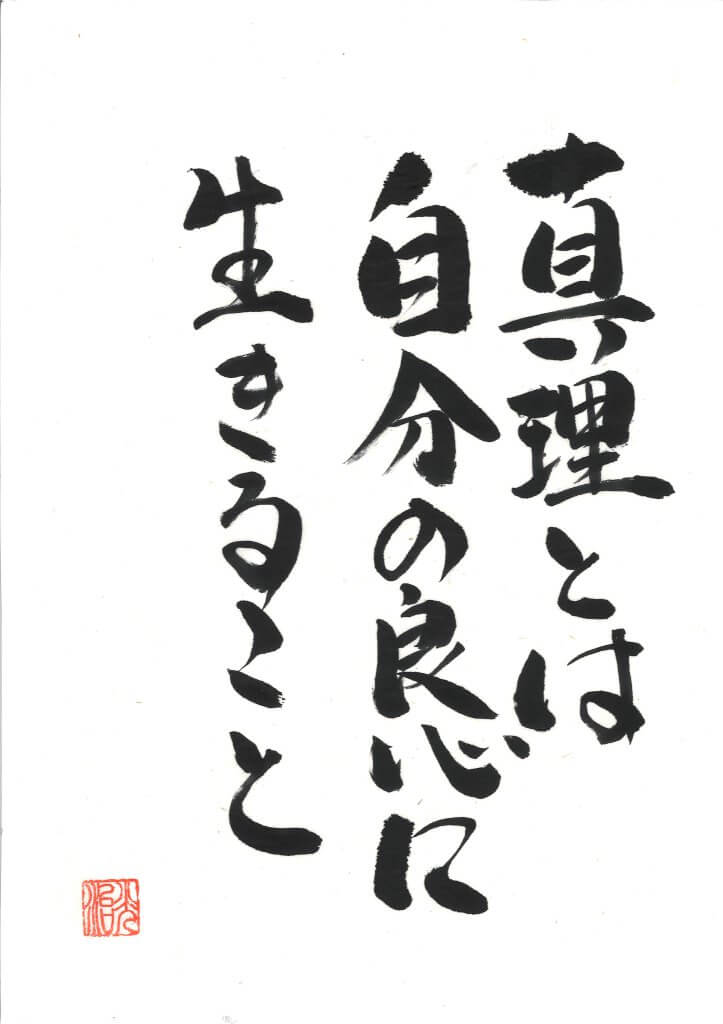 真理とは
自分の良心に
生きること